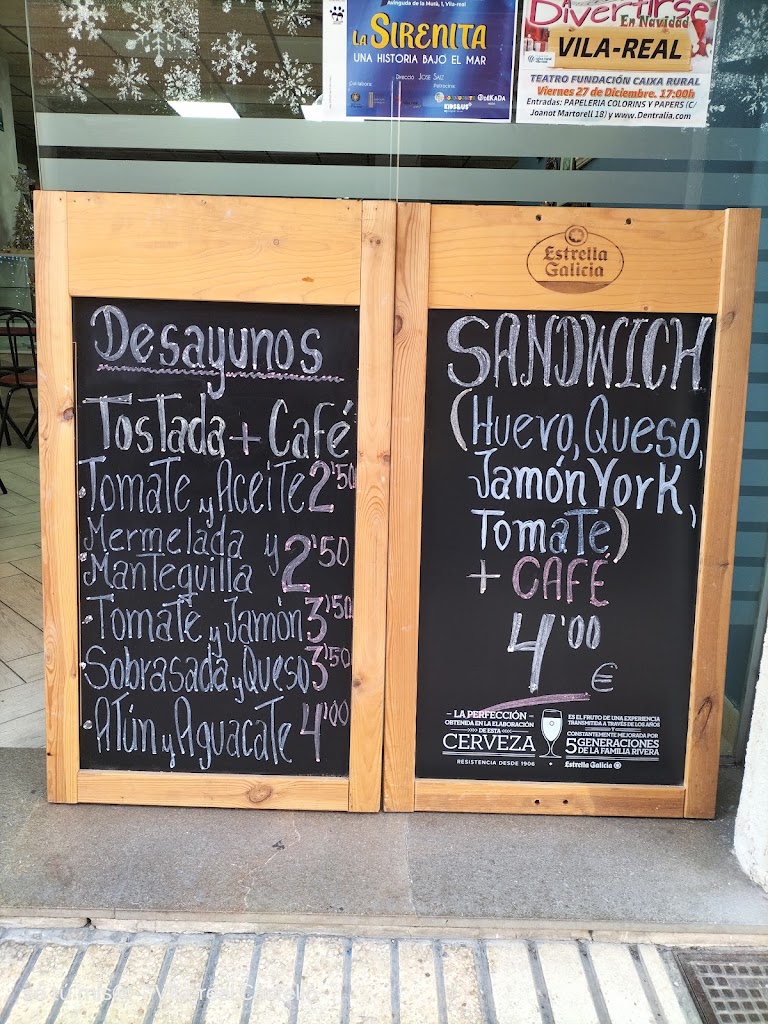 Avinguda de la Murà, 1, Vila-real
La SIRENITA
UNA HISTORIA BAJO EL MAR
DIRECCIÓ JOSE SAIZ
Divertirse
En Navidad
VILA-REAL
TEATRO FUNDACIÓN CAIXA RURAL
Viernes 27 de Diciembre. 17:00h
Entradas: PAPELERIA COLORINS Y PAPERS (C/
Joanot Martorell 18) y www.Dentralia.com
Desayunos
Tostada + Café
Tomate y Aceite 2'50
Mermelada y
Mantequilla 2'50
Tomate y Jamón 3'50
Sobrasada y Queso 3'50
Atún y Aguacate 4'00
Estrella
Galicia
SANDWICH
(Huevo, Queso,
Jamón York,
Tomate)
+ CAFÉ
4'00
€
LA PERFECCIÓN
OBTENIDA EN LA ELABORACIÓN
DE ESTA
CERVEZA
RESISTENCIA DESDE 1906
ES EL FRUTO DE UNA EXPERIENCIA
TRANSMITIDA A TRAVÉS DE LOS AÑOS
Y
CONSTANTEMENTE MEJORADA POR
5 GENERACIONES
DE LA FAMILIA RIVERA
Estrella Galicia